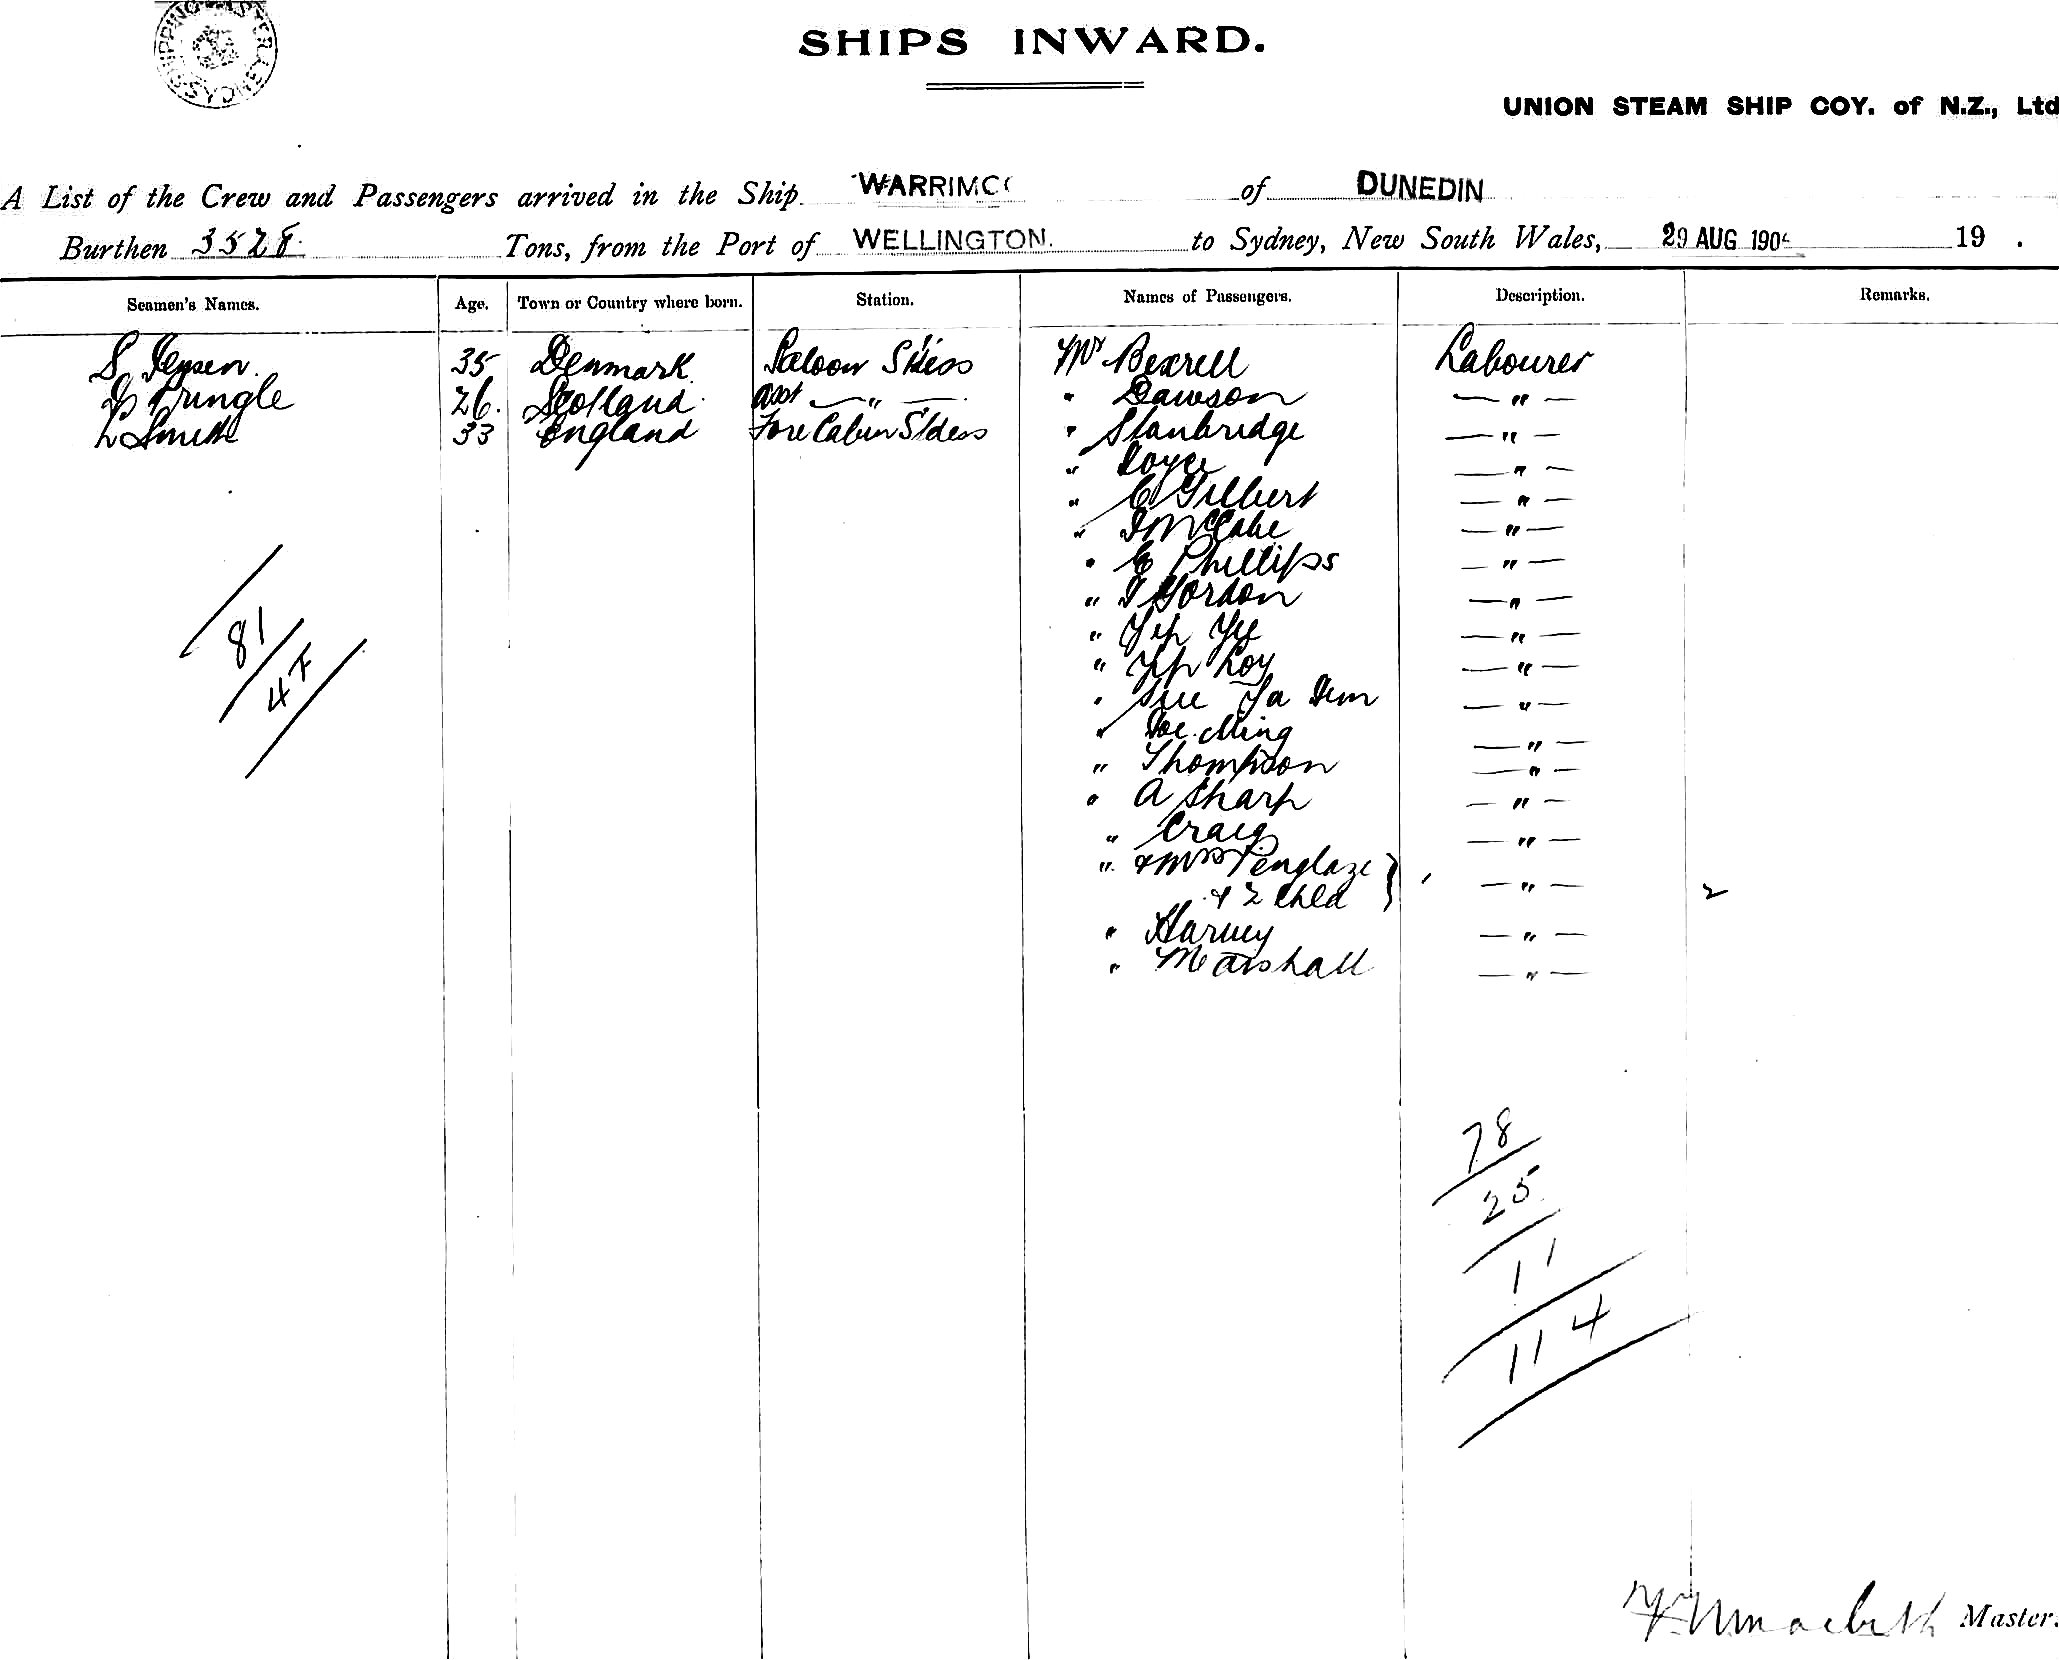 SHIPS INWARD.
UNION STEAM SHIP COY. of N.Z., Ltd
A List of the Crew and Passengers arrived in the Ship WARRIMO of DUNEDIN
Burthen 3528 Tons, from the Port of WELLINGTON. to Sydney, New South Wales, 29 AUG 190 19 .
Seamen's Names. Age. Town or Country where born. Station. Names of Passengers. Description. Remarks.
S Jensen. 35 Denmark Saloon S'dess Mr Bexrell Labourer
Pringle 26. Scotland. asst — " — " Dawson — " —
L Smith 33 England Fore Cabin S'dess " Stanbridge — " —
" Joyce — " —
" C Gilbert — " —
" J McCabe — " —
" E Phillips — " —
" J Gordon — " —
" Yep Yy — " —
" Yip Loy — " —
" Sue Ya — " —
" Ming — " —
" Thompson — " —
" A Sharp — " —
" Craig — " —
" & Mrs Penglaze } — " —
& 2 Chld 2
" Harvey — " —
" Marshall — " —
81
47
78
25
11
114
Macbeth Master.